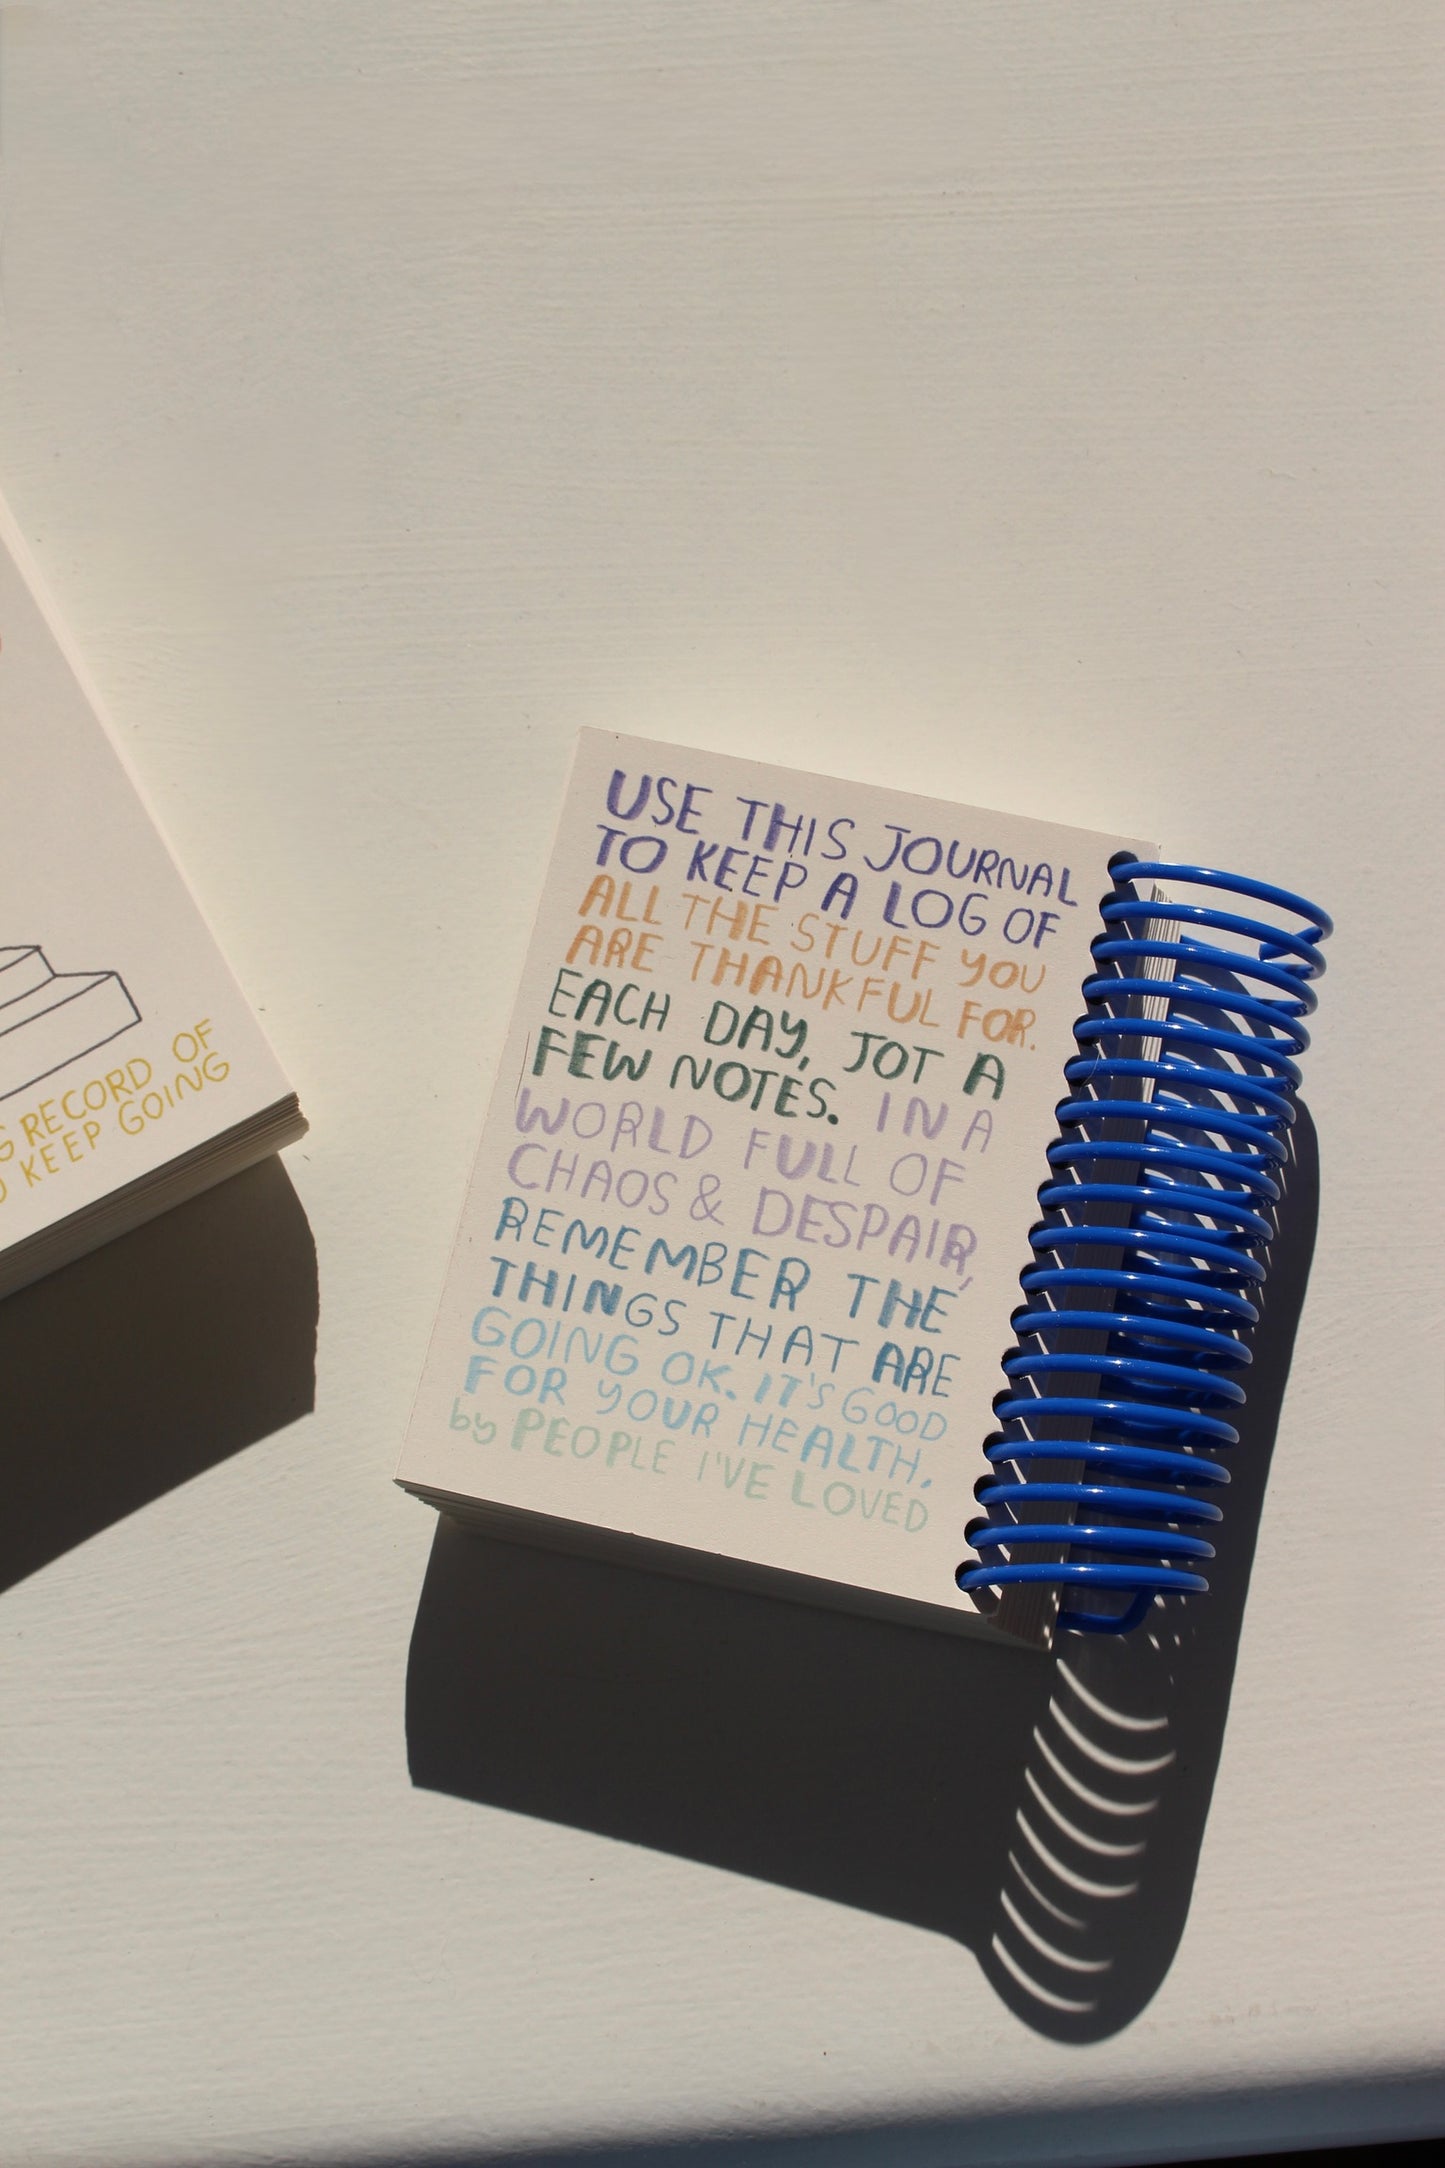 USE THIS JOURNAL
TO KEEP A LOG OF
ALL THE STUFF YOU
ARE THANKFUL FOR.
EACH DAY, JOT A
FEW NOTES. IN A
WORLD FULL OF
CHAOS & DESPAIR,
REMEMBER THE
THINGS THAT ARE
GOING OK. IT'S GOOD
FOR YOUR HEALTH.
by PEOPLE I'VE LOVED
RECORD OF
KEEP GOING